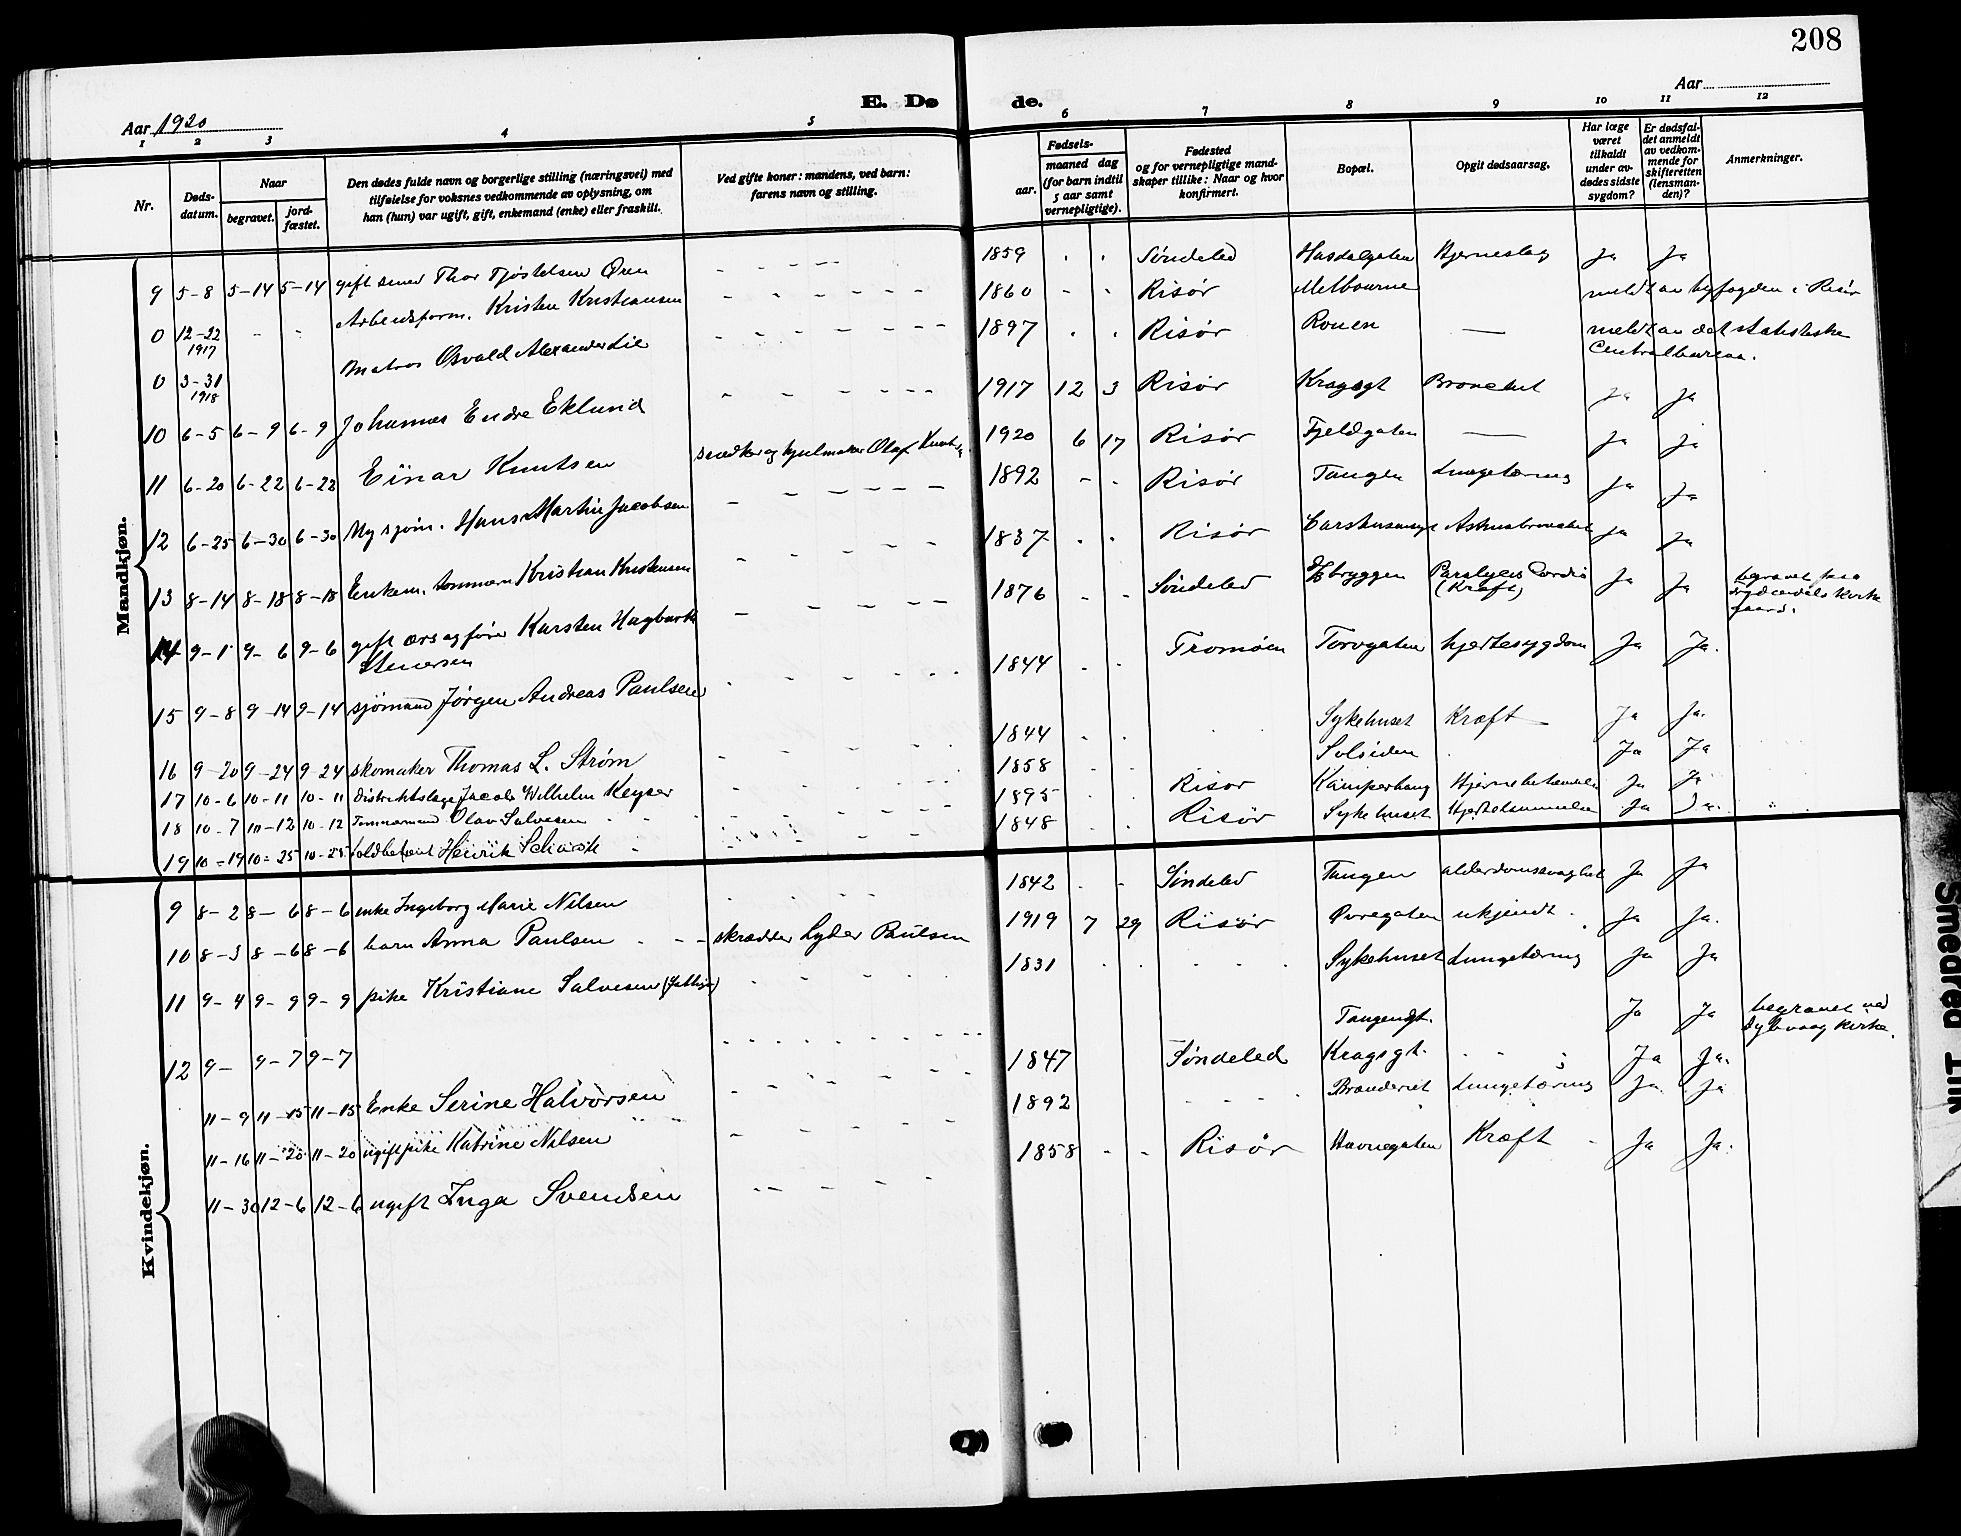 208
Aar 1920
E. Dø
de.
Aar
1 2 3 4 5 6 7 8 9 10 11 12
Nr.
Døds-
datum.
Naar
begravet.
jord-
fæstet.
Den dødes fulde navn og borgerlige stilling (næringsvei) med
tilføielse for voksnes vedkommende av oplysning, om
han (hun) var ugift, gift, enkemand (enke) eller fraskilt.
Ved gifte koner: mandens, ved barn:
farens navn og stilling.
Fødsels-
aar.
maaned dag
(for barn indtil
5 aar samt
vernepligtige).
Fødested
og for vernepligtige mand-
skaper tillike: Naar og hvor
konfirmert.
Bopæl.
Opgit dødsaarsag.
Har læge
været
tilkaldt
under av-
dødes sidste
sygdom?
Er dødsfal-
det anmeldt
av vedkom-
mende for
skifteretten
(lensman-
den)?
Anmerkninger.
Mandkjøn.
9 5-8 5-14 5-14 gift smed Thor Tjøstelsen Øren 1859 Søndeled Hasdalgaten Hjerneslag Ja Ja
0 12-22 1917 Arbeidsform. Kristen Kristiansen 1860 Risør Melbourne meldt av byfogden i Risør
0 3-31 1918 Matros Osvald Alexander Lie 1897 Risør Rouen — meldt av det statistiske
Centralbureau.
10 6-5 6-9 6-9 Johannes Endre Eklund 1917 12 3 Risør Kragsgt Ja Ja
11 6-20 6-22 6-22 Einar Knutsen snedker og hjulmaker Olaf 1920 6 17 Risør Fjeldgaten — Ja Ja
12 6-25 6-30 6-30 Hans Martin Jacobsen 1892 Risør Tangen Lungetæring Ja Ja
13 8-14 8-18 8-18 Enkem. tømmerm Kristian Kristensen 1837 Risør Ja Ja
14 9-1 9-6 9-6 gift Karsten Hagbart
Stenersen 1876 Søndeled bryggen Paralyces Cordis
(Kræft) Ja Ja begravet paa
kirke
gaard.
15 9-8 9-14 9-14 sjømand Jørgen Andreas Paulsen 1844 Tromøen Torvgaten hjertesygdom Ja Ja.
16 9-20 9-24 9-24 skomaker Thomas L. Strøm 1844 Sykehuset Kræft Ja Ja.
17 10-6 10-11 10-11 distriktslæge Jacob Wilhelm Keyser 1858 Solsiden Ja Ja
18 10-7 10-12 10-12 Tømmermand Olav Salvesen 1895 Risør Kamperhaug Ja Ja
19 10-19 10-25 10-25 Henrik 1848 Risør Sykehuset Ja Ja.
Kvindekjøn.
9 8-2 8-6 8-6 enke Ingeborg Marie Nilsen 1842 Søndeled Tangen alderdomssvaghet Ja Ja
10 8-3 8-6 8-6 barn Anna Paulsen skrædder Lyder Paulsen 1919 7 29 Risør Øvregaten ukjendt. Ja Ja.
11 9-4 9-9 9-9 pike Kristiane Salvesen 1831 Sykehuset Lungetæring Ja Ja
12 9- 9-7 9-7 Tangengt. Ja Ja begravet ved
Dybvaag kirke.
11-9 11-15 11-15 Enke Serine Halvorsen 1847 Søndeled Kragsgt. Ja Ja.
11-16 11-20 11-20 ugift pike Katrine Nilsen 1892 Lungetæring Ja. Ja
11-30 12-6 12-6 ugift Inga Svendsen 1858 Risør Havnegaten Kræft Ja Ja.